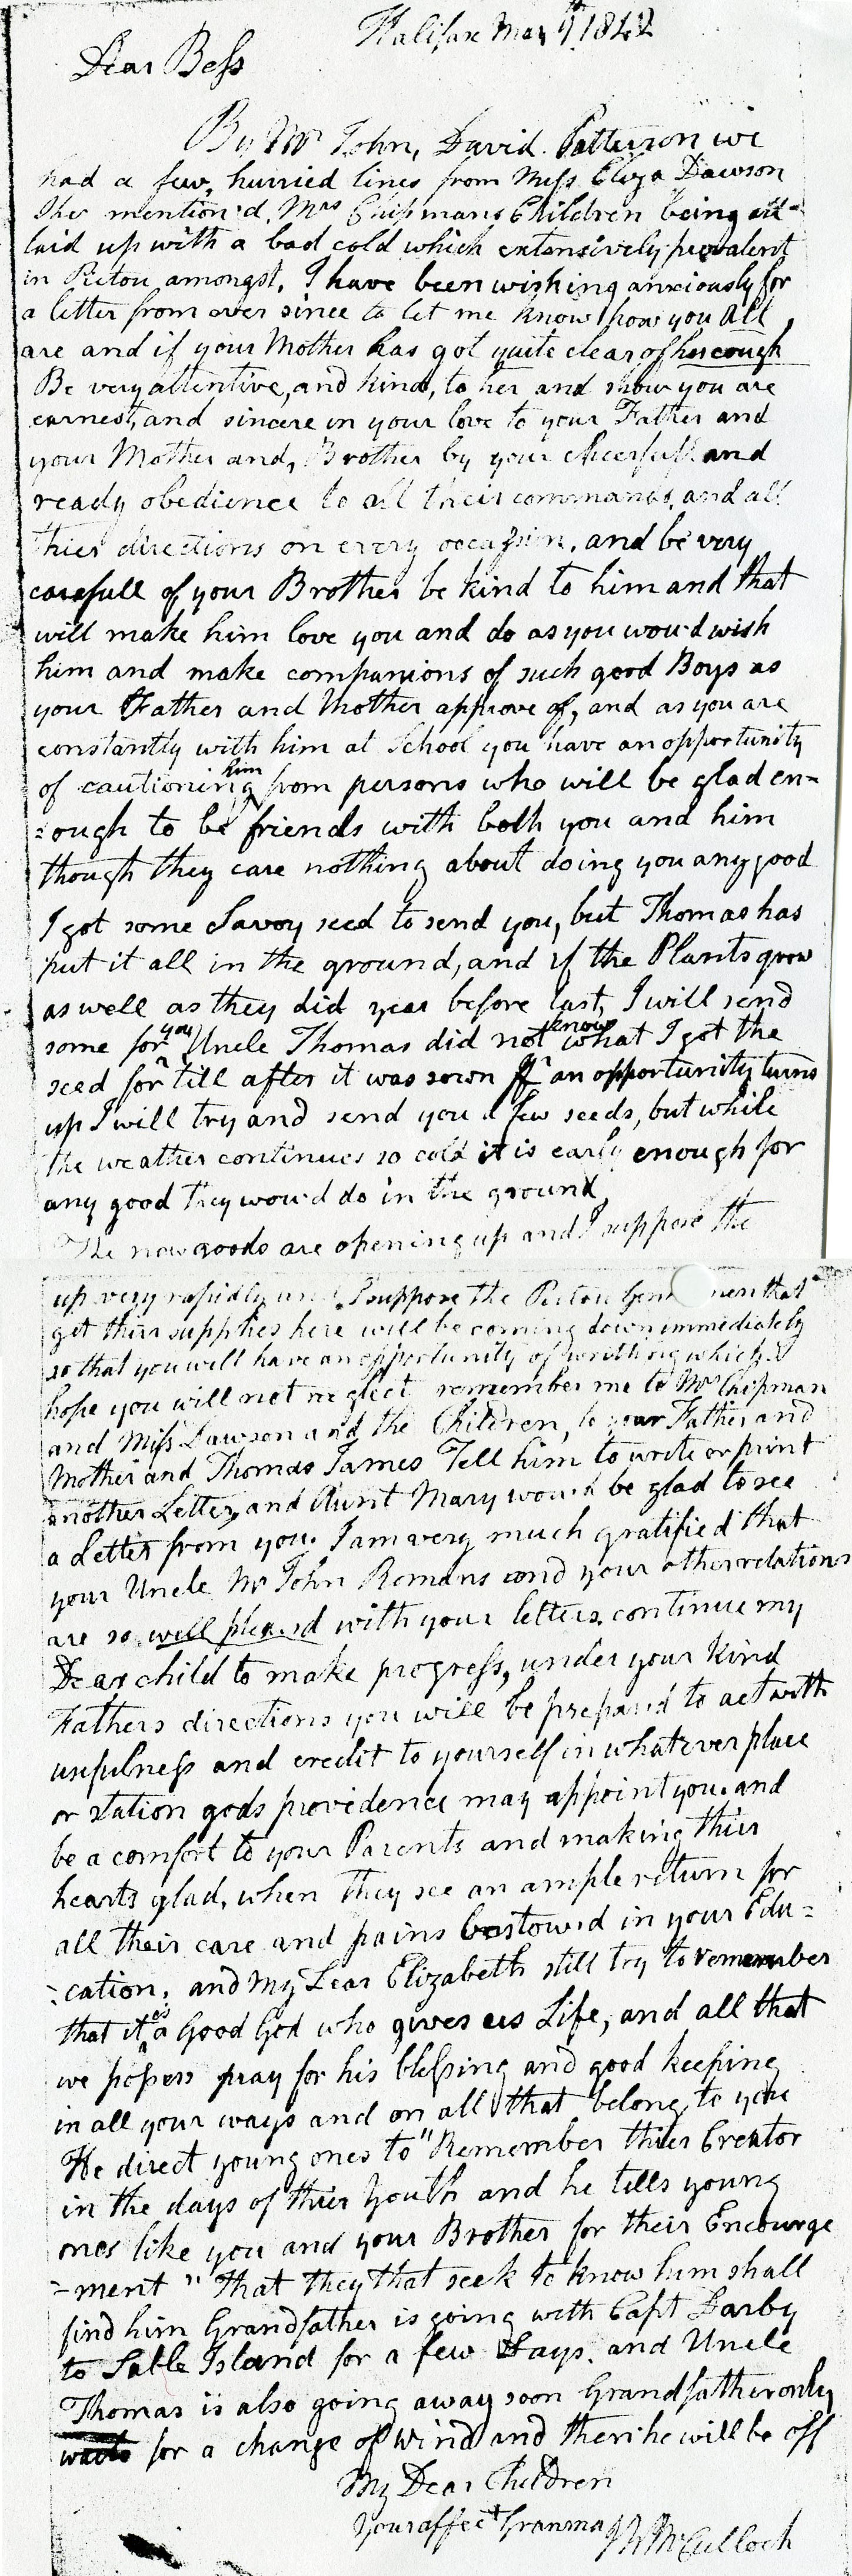 Halifax May 9th 1842
Dear Bess
By Mr John, David. Patterson we
had a few, hurried lines from Miss Eliza Dawson
She mention'd, Mrs Chipmans Children being all
laid up with a bad cold which extensively prevalent
in Pictou amongst, I have been wishing anxiously for
a letter from over since to let me know how you all
are and if your Mother has got quite clear of her cough
Be very attentive, and kind, to her and show you are
earnest, and sincere in your love to your Father and
your Mother and, Brother by your cheerfull and
ready obedience to all their commands, and all
thier directions on every occassion, and be very
carefull of your Brother be kind to him and that
will make him love you and do as you wou'd wish
him and make companions of such good Boys as
your Father and Mother approve of, and as you are
constantly with him at School you have an opportunity
of cautioning him from persons who will be glad en=
=ough to be friends with both you and him
though they care nothing about doing you any good
I got some Savoy seed to send you, but Thomas has
put it all in the ground, and if the Plants grow
as well as they did year before last, I will send
some for you Uncle Thomas did not know what I got the
seed for till after it was sown If an opportunity turns
up I will try and send you a few seeds, but while
the weather continues so cold it is early enough for
any good they wou'd do in the ground
The new goods are opening up and I suppose the
up very rapidly and I suppose the Pictou that
get thier supplies here will be coming down immediately
so that you will have an opportunity of writting which I
hope you will not neglect remember me to Mrs Chipman
and Miss Dawson and the Children, to your Father and
Mother and Thomas James Tell him to write or print
another Letter, and Aunt Mary wou'd be glad to see
a Letter from you. I am very much gratified that
your Uncle Mr John Romans and your other relations
are so well pleased with your letters. continue my
Dear child to make progress, under your kind
Fathers directions you will be prepared to act with
usefulness and credit to yourself in whatever place
or station gods providence may appoint you. and
be a comfort to your Parents and making thier
hearts glad, when they see an ample return for
all their care and pains bestow'd in your Edu=
=cation, and My Dear Elizabeth still try to remember
that it is a Good God who gives us Life, and all that
we possess pray for his blessing and good keeping
in all your ways and on all that belong to you
He direct young ones to "Remember thier Creator
in the days of thier Youth and he tells young
ones like you and your Brother for their Encourge
=ment " That they that seek to know him shall
find him Grandfather is going with Capt Darby
to Sable Island for a few Days. and Uncle
Thomas is also going away soon Grandfather only
waits for a change of wind and then he will be off
My Dear Children
Your affect Granma McCulloch